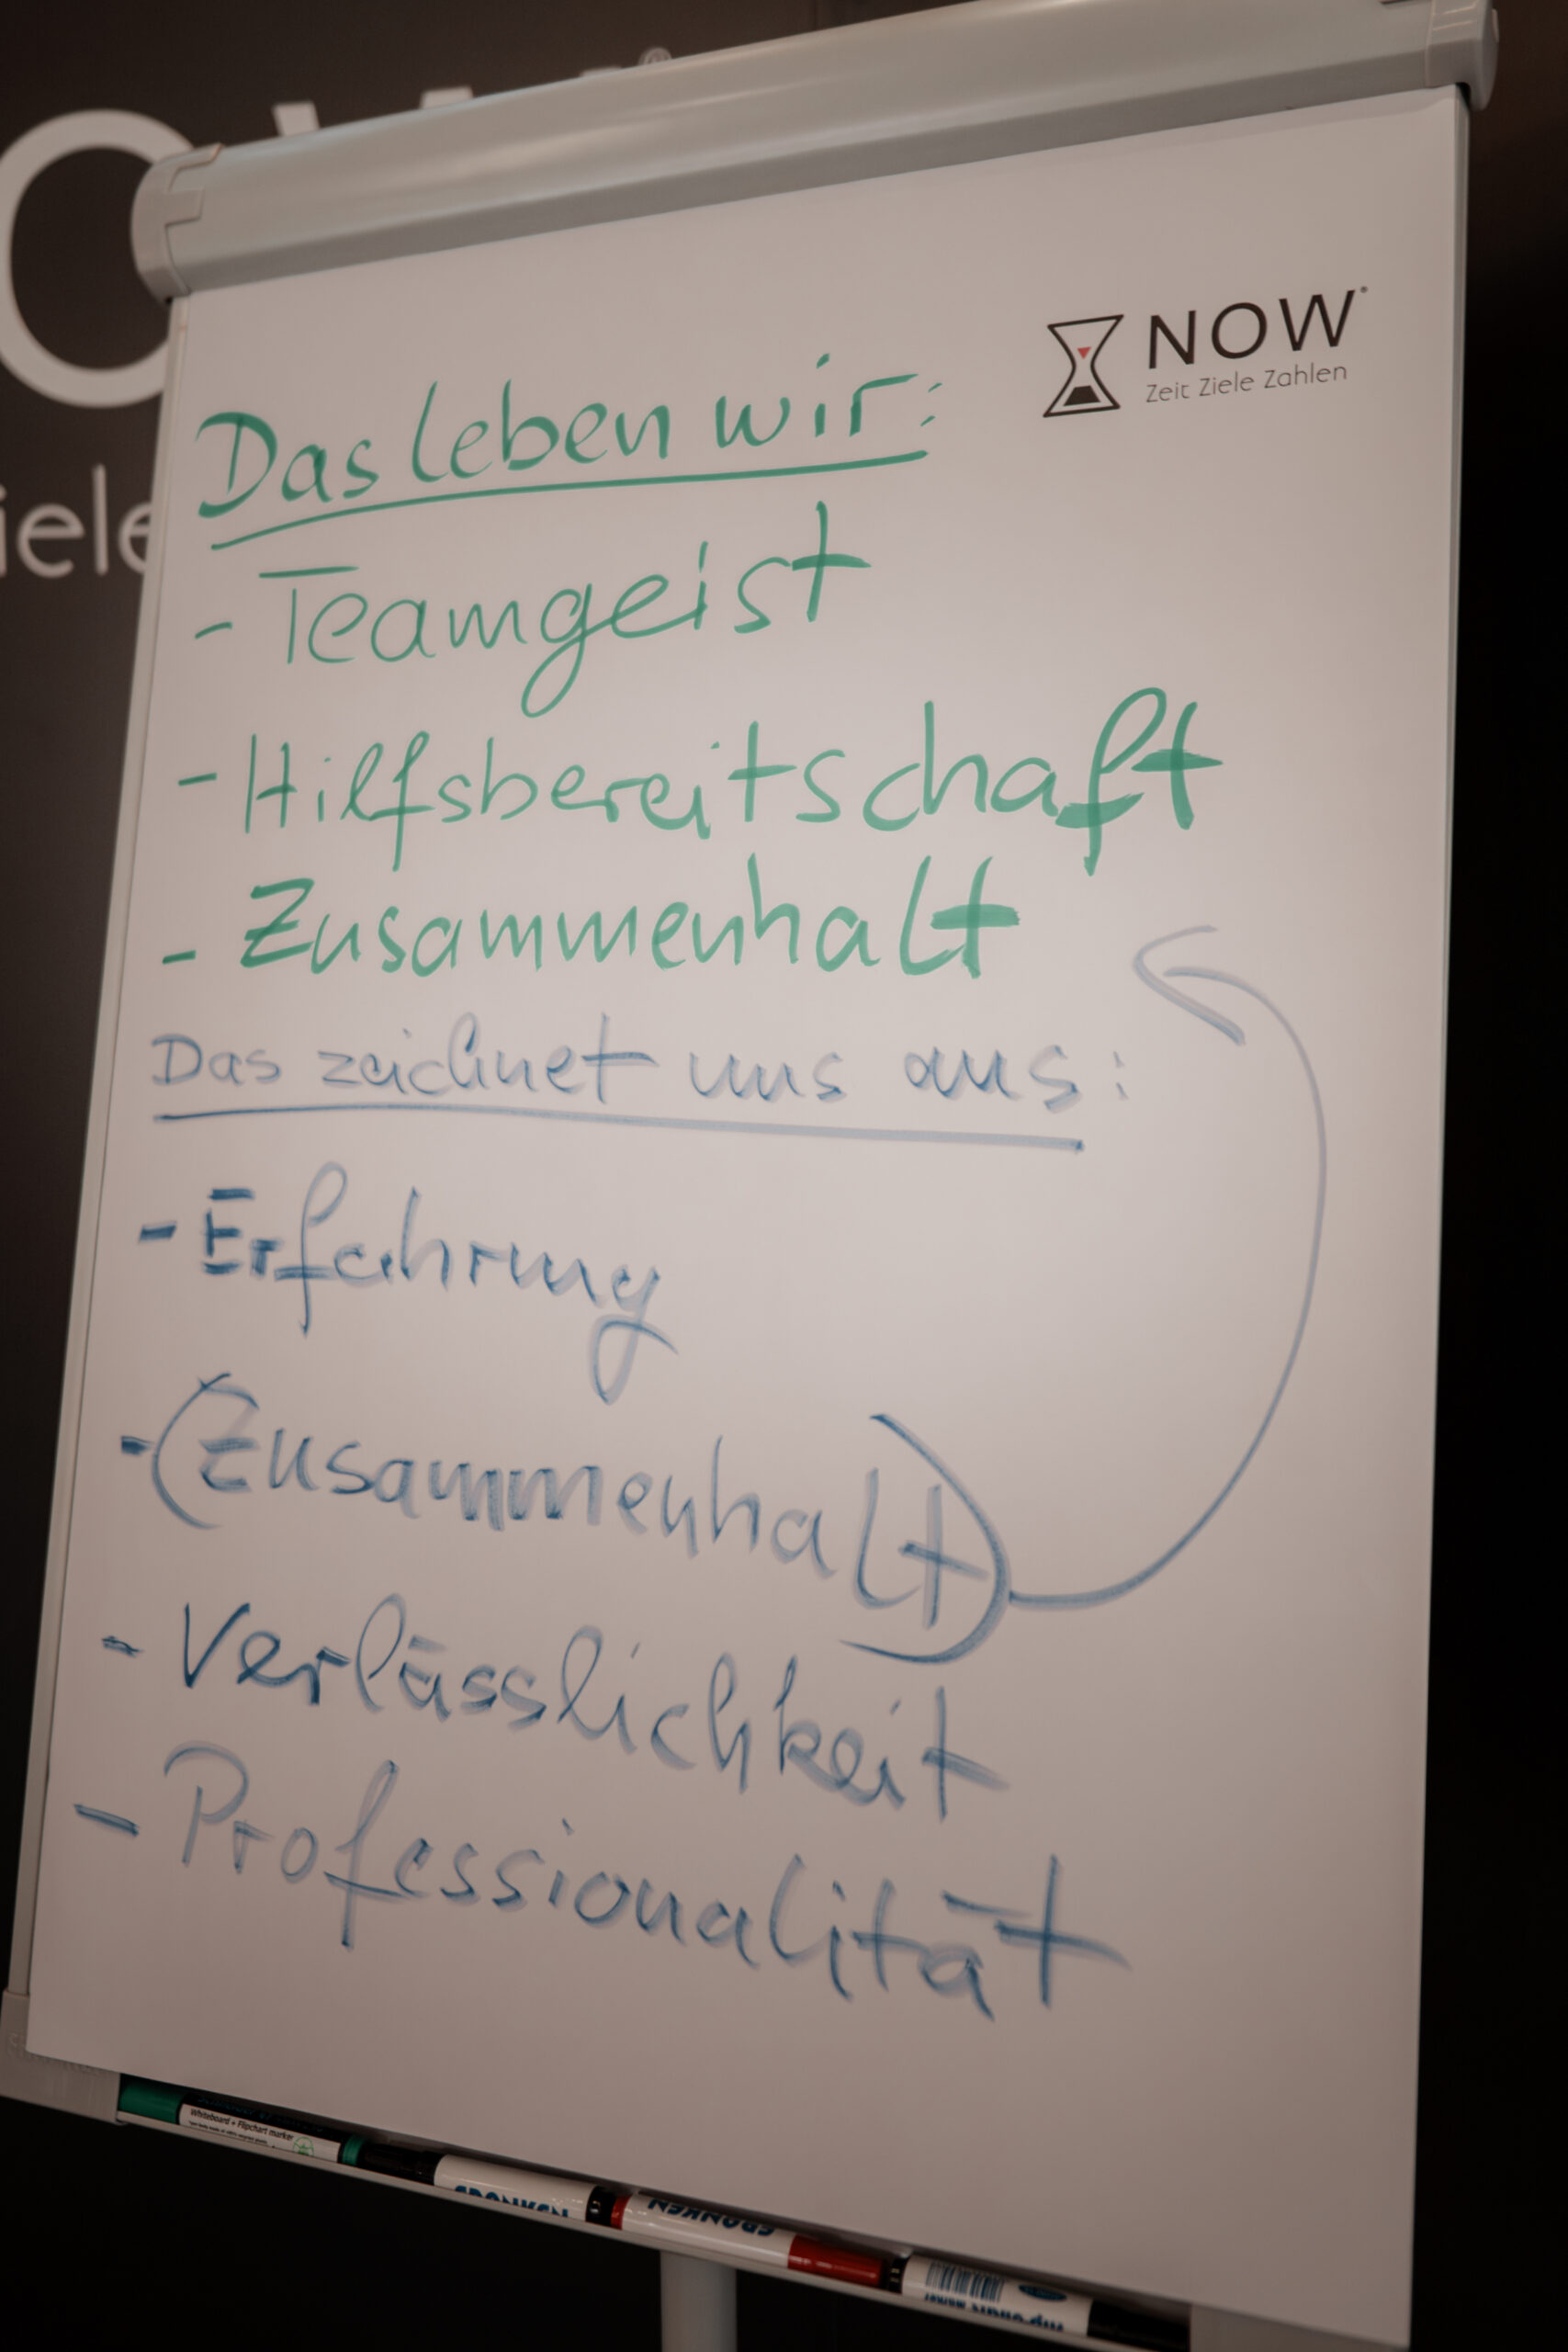 NOW
Zeit Ziele Zahlen
Das leben wir:
- Teamgeist
- Hilfsbereitschaft
- Zusammenhalt
Das zeichnet uns aus:
- Erfahrung
- (Zusammenhalt)
- Verlässlichkeit
- Professionalität
Whiteboard + Flipchart marker
FRANKEN
FRANKEN